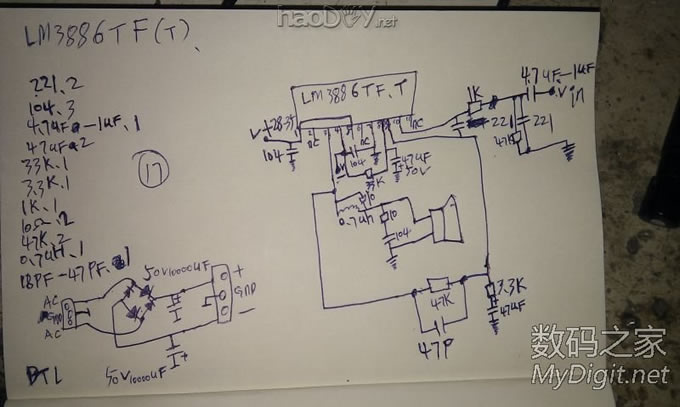 haoDIY.net
LM3886TF(T)、
221.2
104.3
4.7uF-1uF.1
47uF.2
33K.1
3.3K.1
1K.1
10Ω.2
47K.2
0.7uH.1
18PF-47PF.1
17
LM3886TF.T
4.7uF-1uF
1K
in
V+
28-37
104
NC
NC
104
33K
47uF
50V
221
47K
221
10
0.7uH
10
104
47K
47P
3.3K
47uF
50V10000uF
+
GND
-
AC
GND
AC
50V10000uF
BTL
数码之家
MyDigit.net